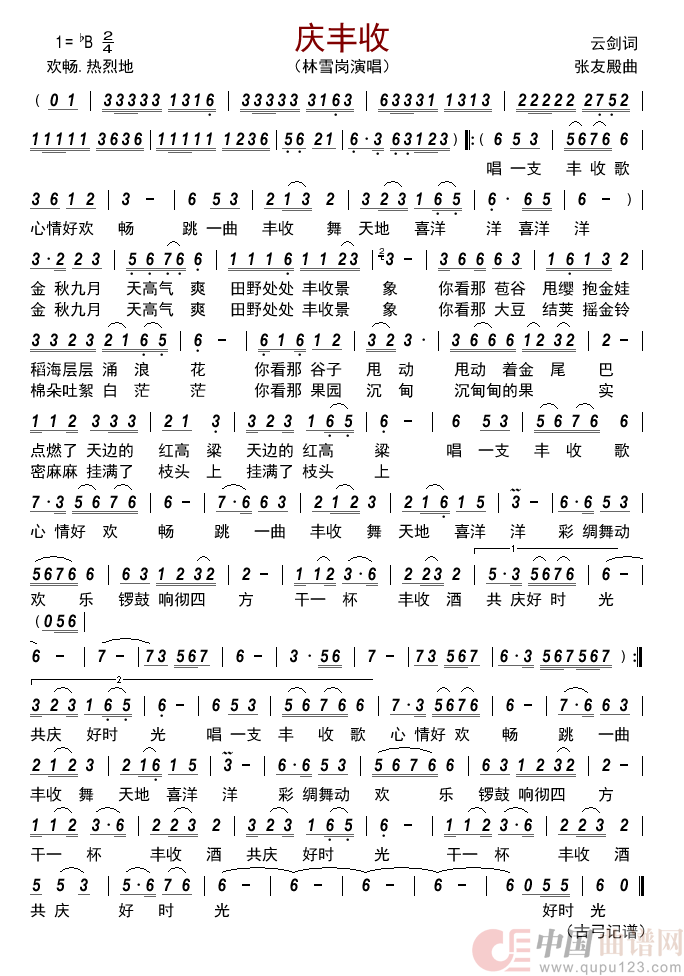 庆丰收
1=♭B 2/4
云剑词
欢畅.热烈地
（林雪岗演唱）
张友殿曲
（0 1 | 33333 1316 | 33333 3163 | 63331 1313 | 22222 2752 |
11111 3636 | 11111 1236 | 56 21 | 6·3 63123 ）‖:（ 6 53 | 5676 6 |
唱 一支 丰 收 歌
3 6 1 2 | 3 - | 6 5 3 | 2 1 3 2 | 3 2 3 1 6 5 | 6· 6 5 | 6 - ）|
心情好欢 畅 跳 一曲 丰收 舞 天地 喜洋 洋 喜洋 洋
3·2 2 3 | 5 6 7 6 6 | 1 1 1 6 1 1 2 3 | 3 - | 6 1 6 3 | 1 6 1 3 2 |
金 秋九月 天高气 爽 田野处处 丰收景 象 你看那 苞谷 甩缨 抱金娃
金 秋九月 天高气 爽 田野处处 丰收景 象 你看那 大豆 结荚 摇金铃
3 3 2 3 2 1 6 5 | 6 - | 6 1 6 1 2 | 3 2 3· | 3 6 6 6 1 2 3 2 | 2 - |
稻海层层 涌 浪 花 你看那 谷子 甩 动 甩动 着金 尾 巴
棉朵吐絮 白 茫 茫 你看那 果园 沉 甸 沉甸甸的果 实
1 1 2 3 3 3 | 2 1 3 | 3 2 3 1 6 5 | 6 - | 6 5 3 | 5 6 7 6 6 |
点燃了 天边的 红高 粱 天边的 红高 粱 唱 一支 丰 收 歌
密麻麻 挂满了 枝头 上 挂满了 枝头 上
7·3 5 6 7 6 | 6 - | 7·6 6 3 | 2 1 2 3 | 2 1 6 1 5 | 3 - | 6·6 5 3 |
心 情好 欢 畅 跳 一曲 丰收 舞 天地 喜洋 洋 彩 绸舞动
1
5676 6 | 6 3 1 2 3 2 | 2 - | 1 1 2 3·6 | 2 2 3 2 | 5·3 5 6 7 6 | 6 - |
欢 乐 锣鼓 响彻四 方 干一 杯 丰收 酒 共 庆好 时 光
（0 5 6 |
6 - | 7 - | 7 3 5 6 7 | 6 - | 3·5 6 | 7 - | 7 3 5 6 7 | 6·3 567567 ）:‖
2
3 2 3 1 6 5 | 6 - | 6 5 3 | 5 6 7 6 6 | 7·3 5676 | 6 - | 7·6 6 3 |
共庆 好时 光 唱 一支 丰 收 歌 心 情好 欢 畅 跳 一曲
2 1 2 3 | 2 1 6 1 5 | 3 - | 6·6 5 3 | 5 6 7 6 6 | 6 3 1 2 3 2 | 2 - |
丰收 舞 天地 喜洋 洋 彩 绸舞动 欢 乐 锣鼓 响彻四 方
1 1 2 3·6 | 2 2 3 2 | 3 2 3 1 6 5 | 6 - | 1 1 2 3·6 | 2 2 3 2 |
干一 杯 丰收 酒 共庆 好时 光 干一 杯 丰收 酒
5 5 3 | 5·6 7 6 | 6 - | 6 - | 6 - | 6 - | 6 0 5 5 | 6 0 ‖
共 庆 好 时 光 好时 光
（古弓记谱）
中国曲谱网
www.qupu123.com